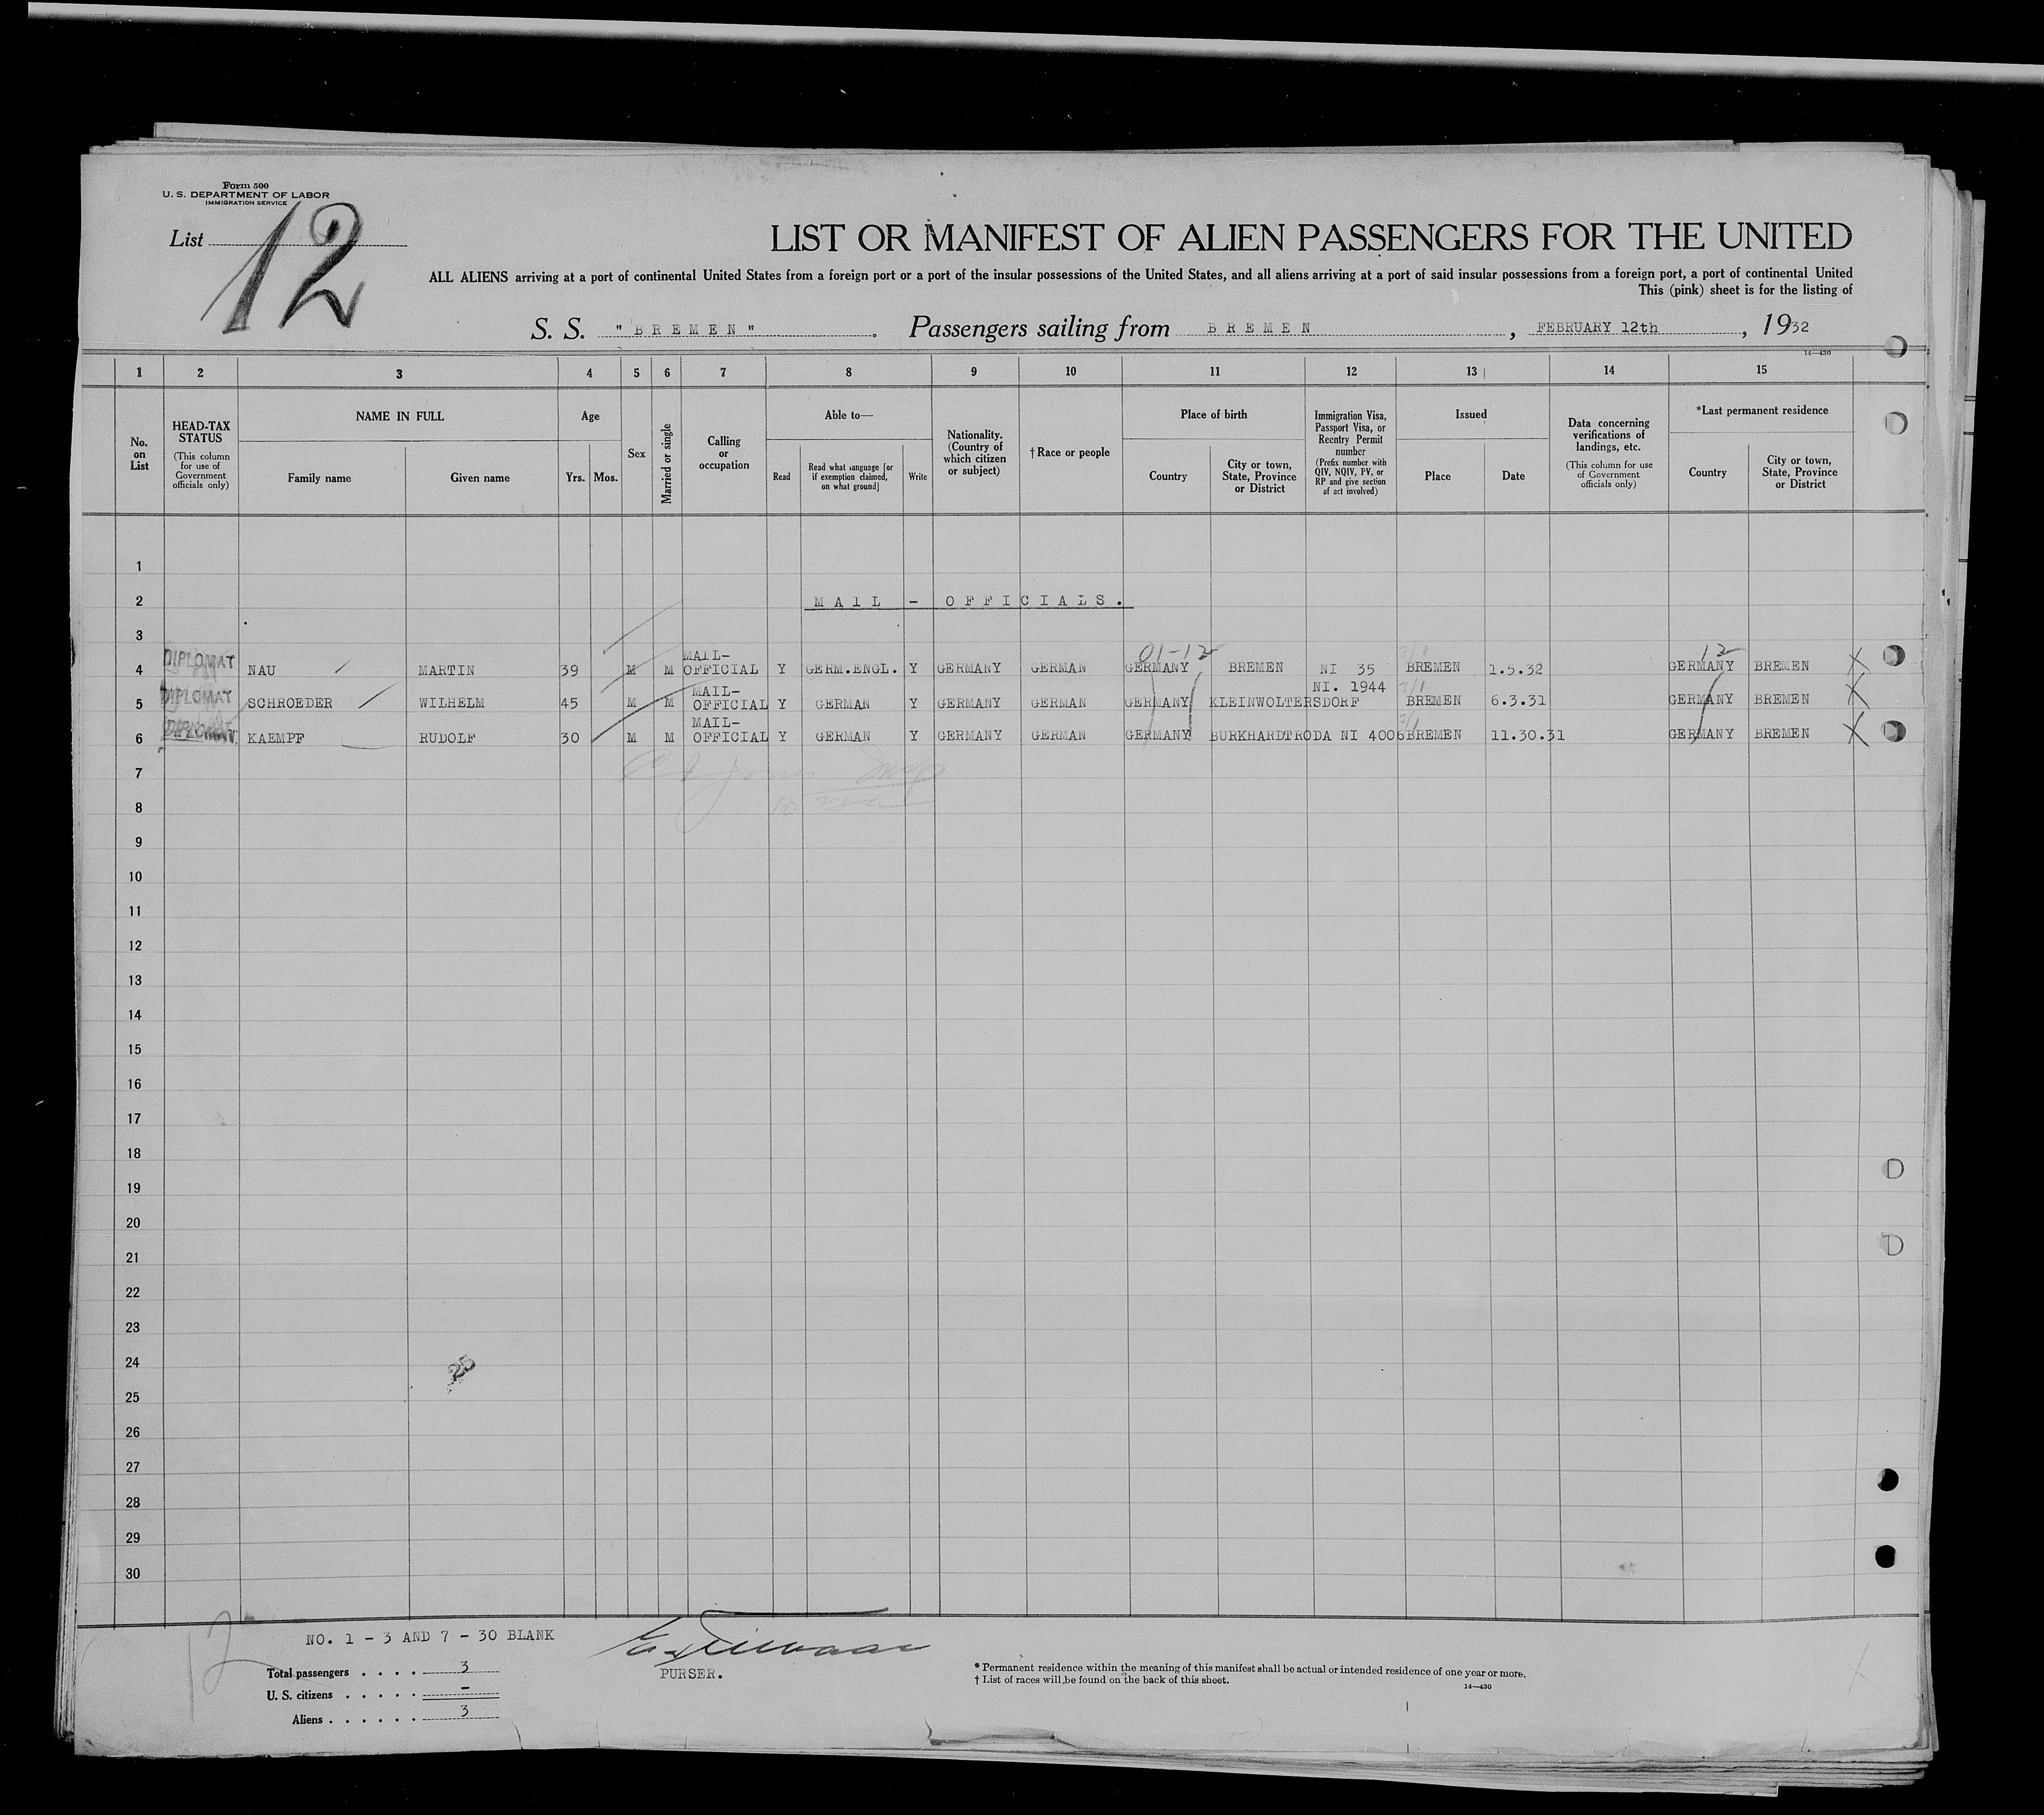 Form 500
U. S. DEPARTMENT OF LABOR
IMMIGRATION SERVICE
List 12
LIST OR MANIFEST OF ALIEN PASSENGERS FOR THE UNITED
ALL ALIENS arriving at a port of continental United States from a foreign port or a port of the insular possessions of the United States, and all aliens arriving at a port of said insular possessions from a foreign port, a port of continental United
This (pink) sheet is for the listing of
S. S. "BREMEN" . Passengers sailing from BREMEN , FEBRUARY 12th , 1932
14—430
1 2 3 4 5 6 7 8 9 10 11 12 13 14 15
No. on List
HEAD-TAX STATUS
(This column for use of Government officials only)
NAME IN FULL
Family name
Given name
Age
Yrs.
Mos.
Sex
Married or single
Calling or occupation
Able to—
Read
Read what language [or if exemption claimed, on what ground]
Write
Nationality. (Country of which citizen or subject)
†Race or people
Place of birth
Country
City or town, State, Province or District
Immigration Visa, Passport Visa, or Reentry Permit number
(Prefix number with QIV, NQIV, PV, or RP and give section of act involved)
Issued
Place
Date
Data concerning verifications of landings, etc.
(This column for use of Government officials only)
*Last permanent residence
Country
City or town, State, Province or District
1
2 MAIL - OFFICIALS.
3
01-12 12
4 DIPLOMAT NAU MARTIN 39 M M MAIL-OFFICIAL Y GERM.ENGL. Y GERMANY GERMAN GERMANY BREMEN NI 35 BREMEN 1.5.32 GERMANY BREMEN X
5 DIPLOMAT SCHROEDER WILHELM 45 M M MAIL-OFFICIAL Y GERMAN Y GERMANY GERMAN GERMANY KLEINWOLTERSDORF NI. 1944 3/1 BREMEN 6.3.31 GERMANY BREMEN X
6 DIPLOMAT KAEMPF RUDOLF 30 M M MAIL-OFFICIAL Y GERMAN Y GERMANY GERMAN GERMANY BURKHARDTRODA NI 4006 3/1 BREMEN 11.30.31 GERMANY BREMEN X
7
8
9
10
11
12
13
14
15
16
17
18
19
20
21
22
23
24 25
25
26
27
28
29
30
12
NO. 1 - 3 AND 7 - 30 BLANK
Total passengers . . . . 3
U. S. citizens . . . . . -
Aliens . . . . . . 3
PURSER.
* Permanent residence within the meaning of this manifest shall be actual or intended residence of one year or more.
† List of races will be found on the back of this sheet.
14—430